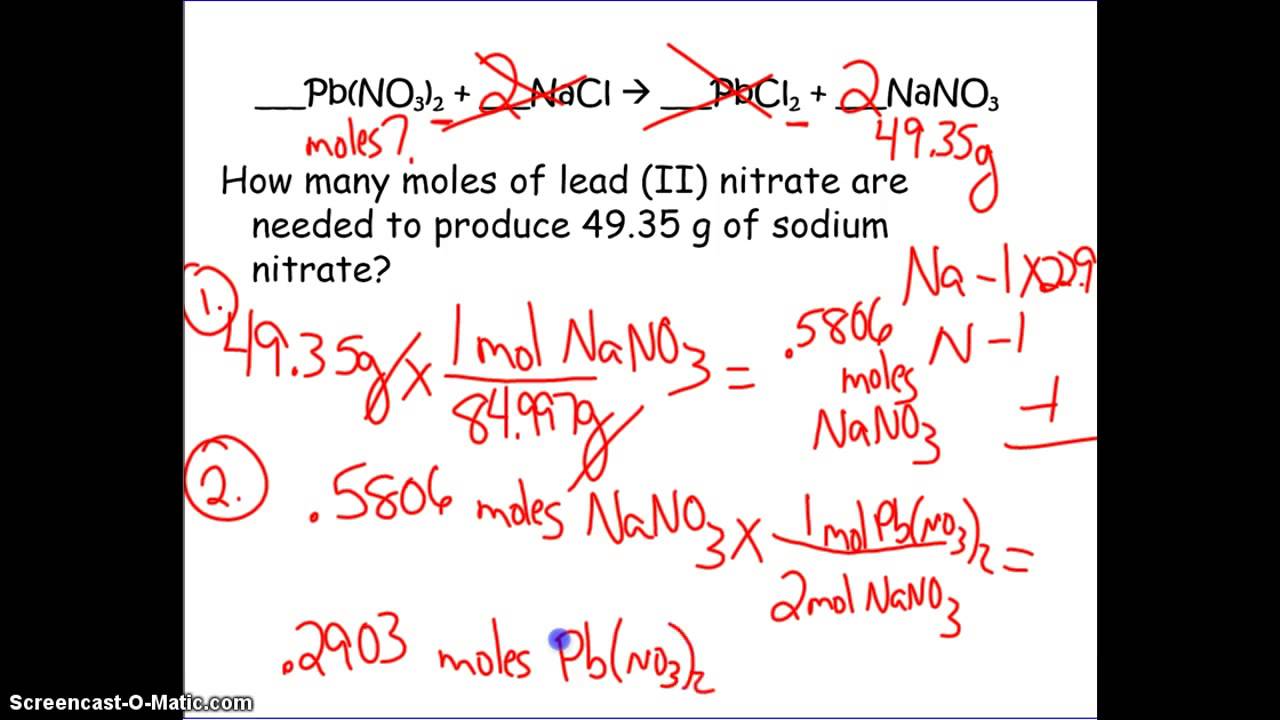 ___Pb(NO₃)₂ + 2NaCl → ___PbCl₂ + 2NaNO₃
moles?
49.35g
How many moles of lead (II) nitrate are
needed to produce 49.35 g of sodium
nitrate?
Na - 1 x 22.9
N - 1
1. 49.35g x 1 mol NaNO₃ / 84.997g = .5806 moles NaNO₃
2. .5806 moles NaNO₃ x 1 mol Pb(NO₃)₂ / 2 mol NaNO₃ =
.2903 moles Pb(NO₃)₂
Screencast-O-Matic.com